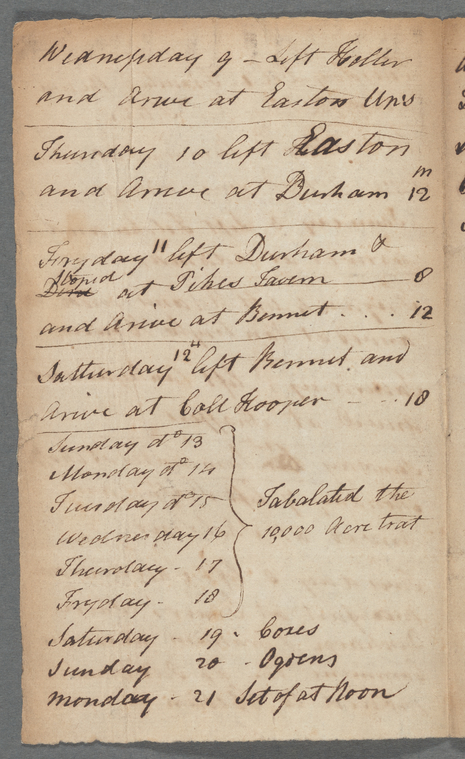 Wednesday 9 - Left Heller
and Arive at Easton Un's
Thursday 10 left Easton
and Arrive at Durham 12 m
Fryday 11 left Durham &
Stoped at Pikes Tavern — 8
and Arive at Bennet . . . . 12
Satturday 12" left Bennet and
Arive at Coll Hooper — - - 18
Sunday do 13
Monday do 14
Tuesday do 15
Wednesday 16
Thursday - 17
Fryday - 18
Tabalated the
10,000 Acre trat
Saturday - 19 - Coxes
Sunday 20 - Ogdens
Monday - 21 Set of at Noon